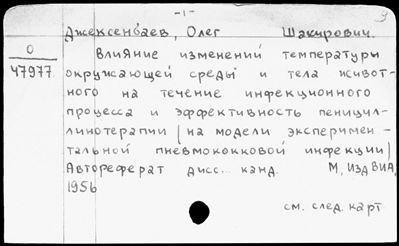 -1-
9
Джексенбаев, Олег Шакирович.
О
47977
Влияние изменений температуры
окружающей среды и тела живот-
ного на течение инфекционного
процесса и эффективность пеницил-
линотерапии (на модели эксперимен-
тальной пневмококковой инфекции)
Автореферат дисс... канд. М, изд ВИА,
1956
см. след. карт